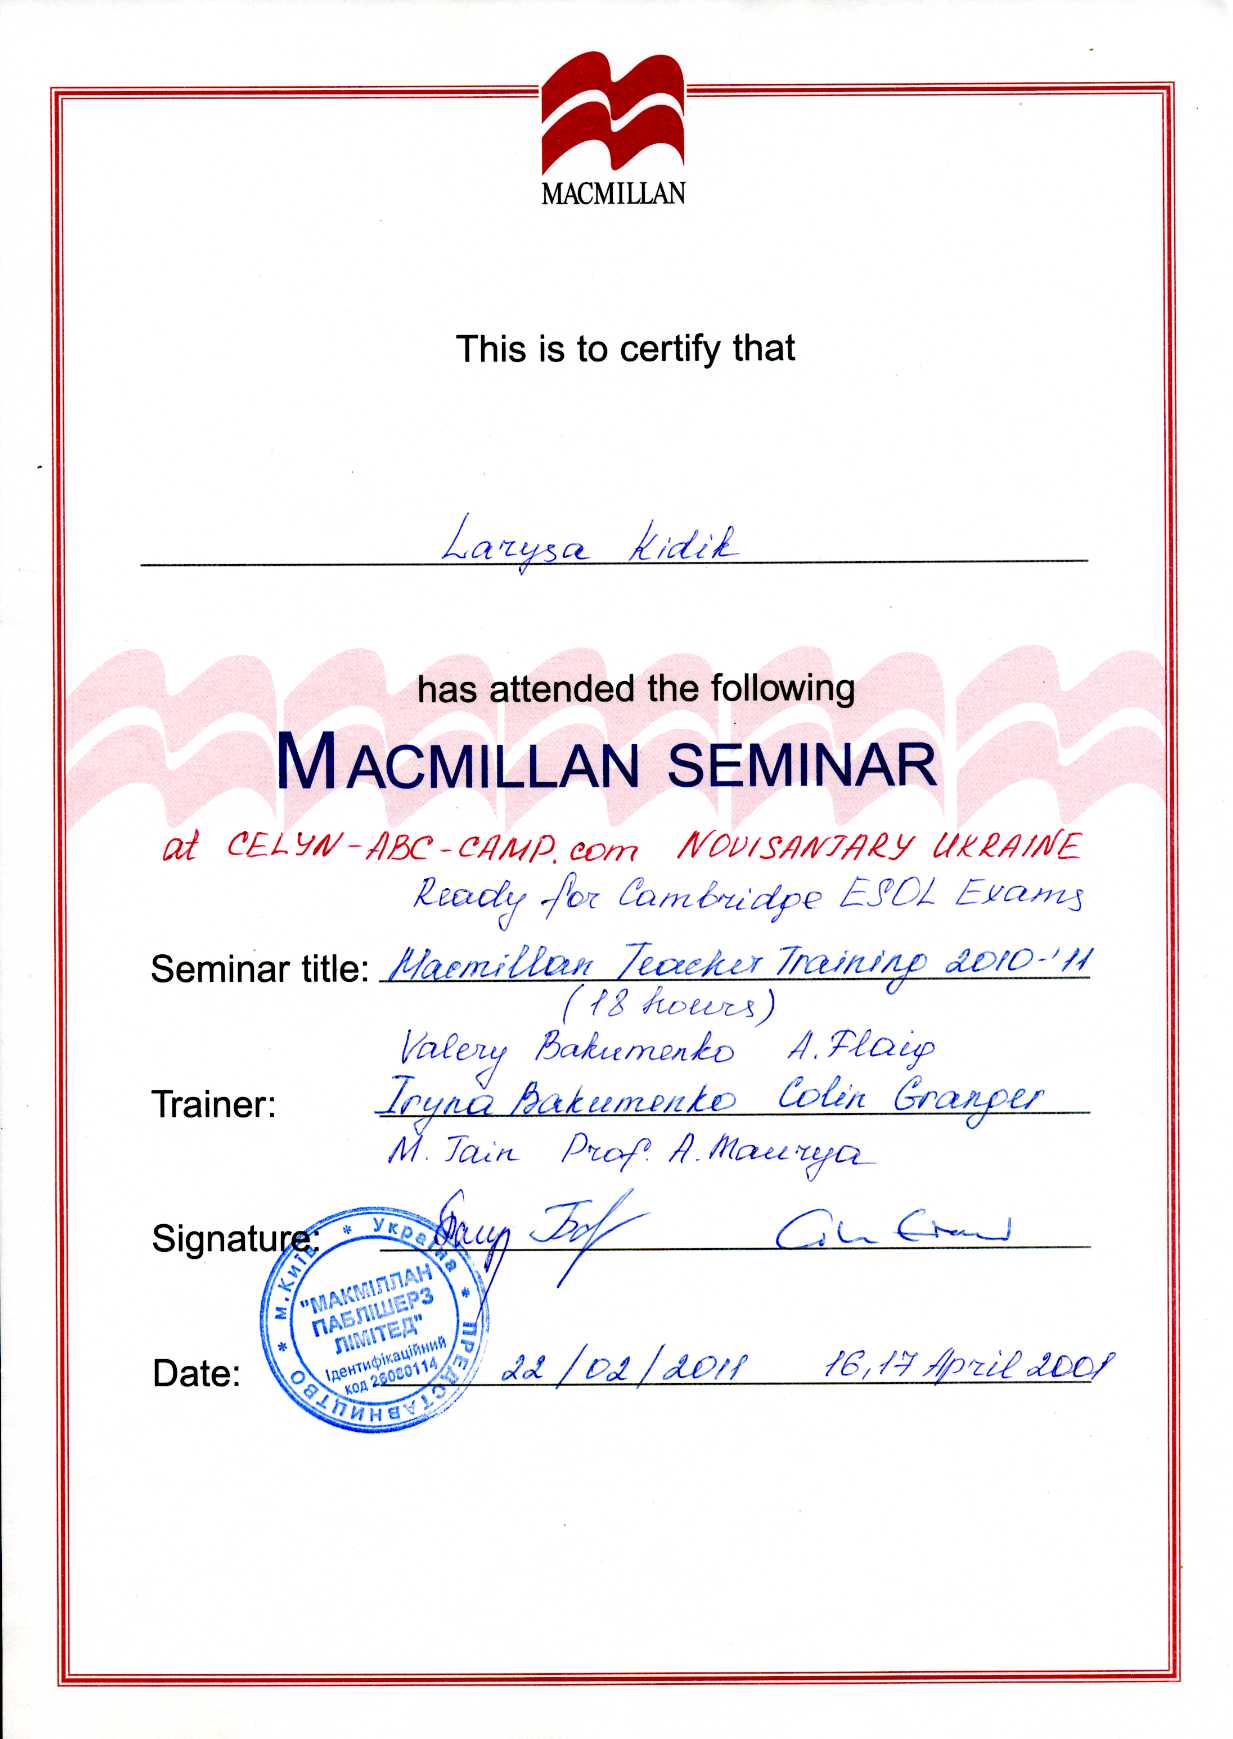 MACMILLAN
This is to certify that
Larysa Kidik
has attended the following
MACMILLAN SEMINAR
at CELYN-ABC-CAMP.com NOVISANJARY UKRAINE
Ready for Cambridge ESOL Exams
Seminar title: Macmillan Teacher Training 2010-'11
(18 hours)
Valery Bakumenko A. Flaig
Trainer: Iryna Bakumenko Colin Granger
M. Jain Prof. A. Maurya
Signature:
* Україна * ПРЕДСТАВНИЦТВО * м.Київ
"МАКМІЛЛАН
ПАБЛІШЕРЗ
ЛІМІТЕД"
Ідентифікаційний
код 26080114
Date: 22/02/2011 16,17 April 2001